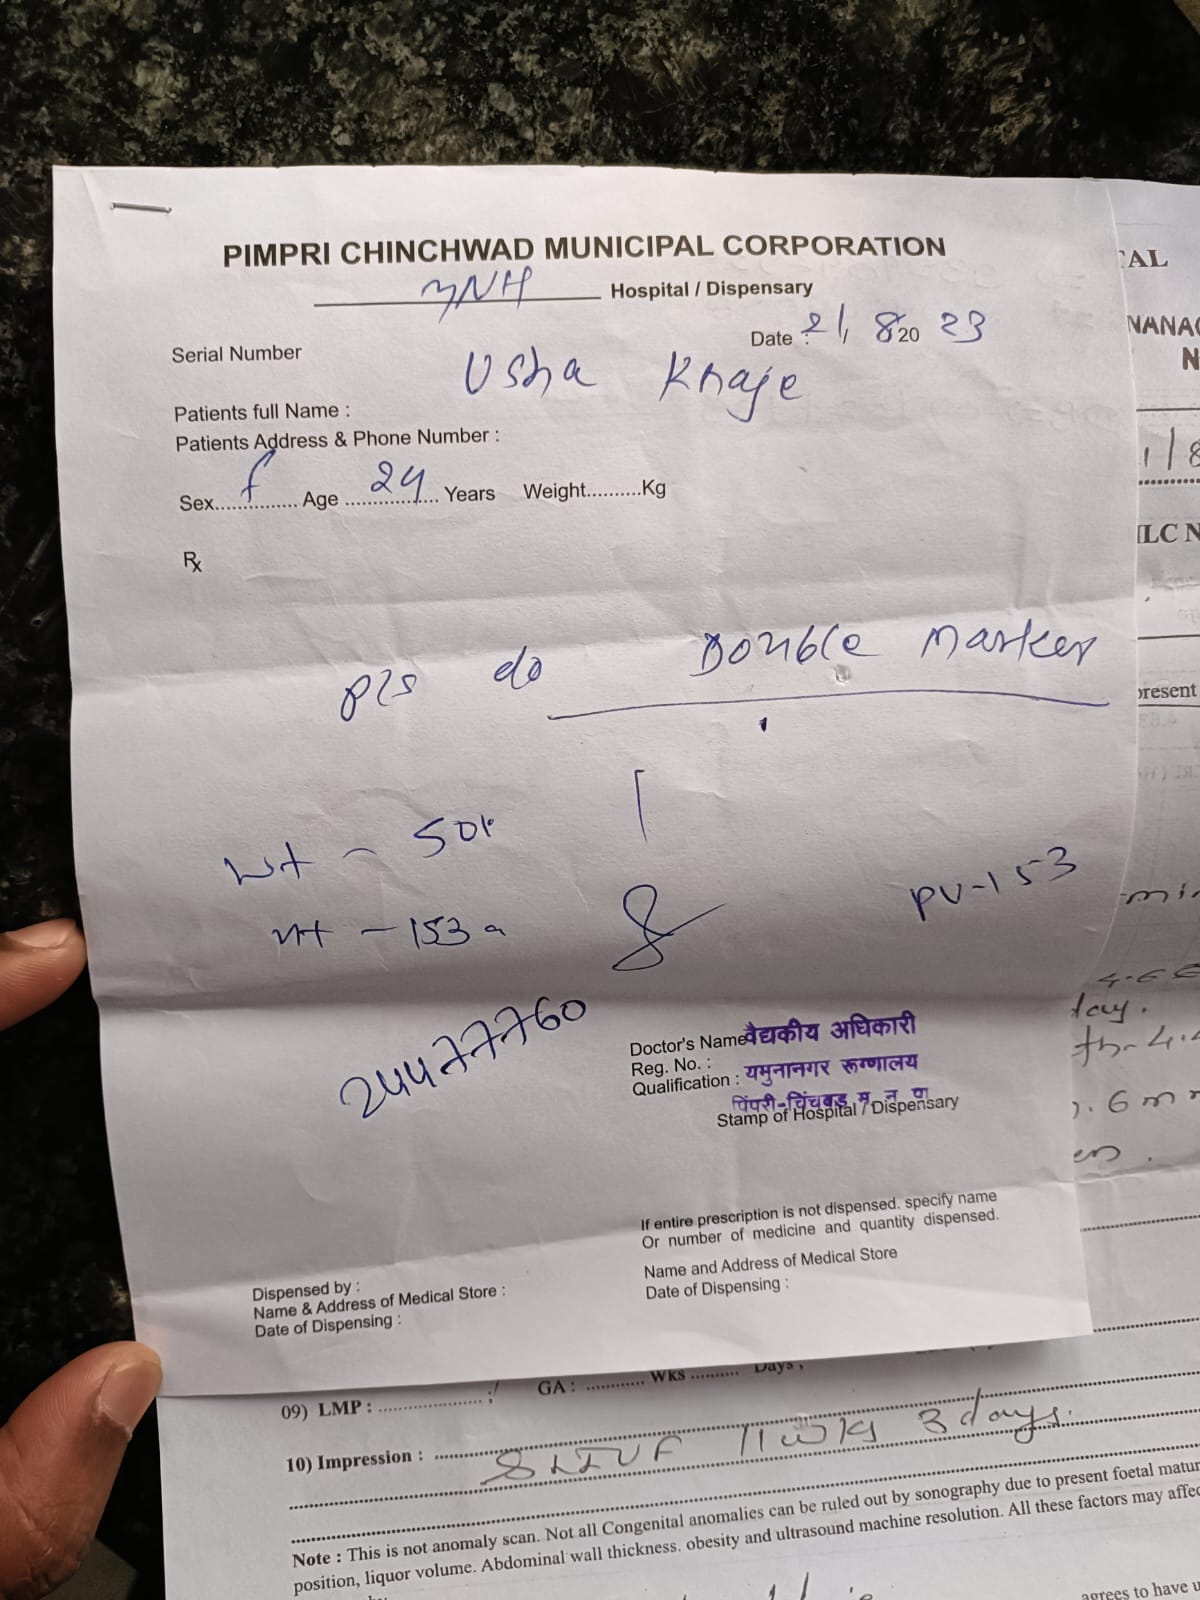 PIMPRI CHINCHWAD MUNICIPAL CORPORATION
YNH Hospital / Dispensary
Date : 21/ 8 20 23
Serial Number
Usha Khaje
Patients full Name :
Patients Address & Phone Number :
Sex............... f Age ................. 24 Years Weight..........Kg
Rx
pls do Double Marker
wt - 50k
Ht - 153
PU-153
24477760
Doctor's Name वैद्यकीय अधिकारी
Reg. No. :
Qualification : यमुनानगर रूग्णालय
पिंपरी-चिंचवड म न पा
Stamp of Hospital / Dispensary
If entire prescription is not dispensed. specify name
Or number of medicine and quantity dispensed.
Name and Address of Medical Store
Date of Dispensing :
Dispensed by :
Name & Address of Medical Store :
Date of Dispensing :
TAL
NANAG
N
1/8
ILC N
present
min
day.
4.4
.6 m
09) LMP : ..................... GA : ............ WKS .......... Days,
10) Impression : SLIUF 11 wks 3 days.
Note : This is not anomaly scan. Not all Congenital anomalies can be ruled out by sonography due to present foetal matur
position, liquor volume. Abdominal wall thickness. obesity and ultrasound machine resolution. All these factors may affec
agrees to have u